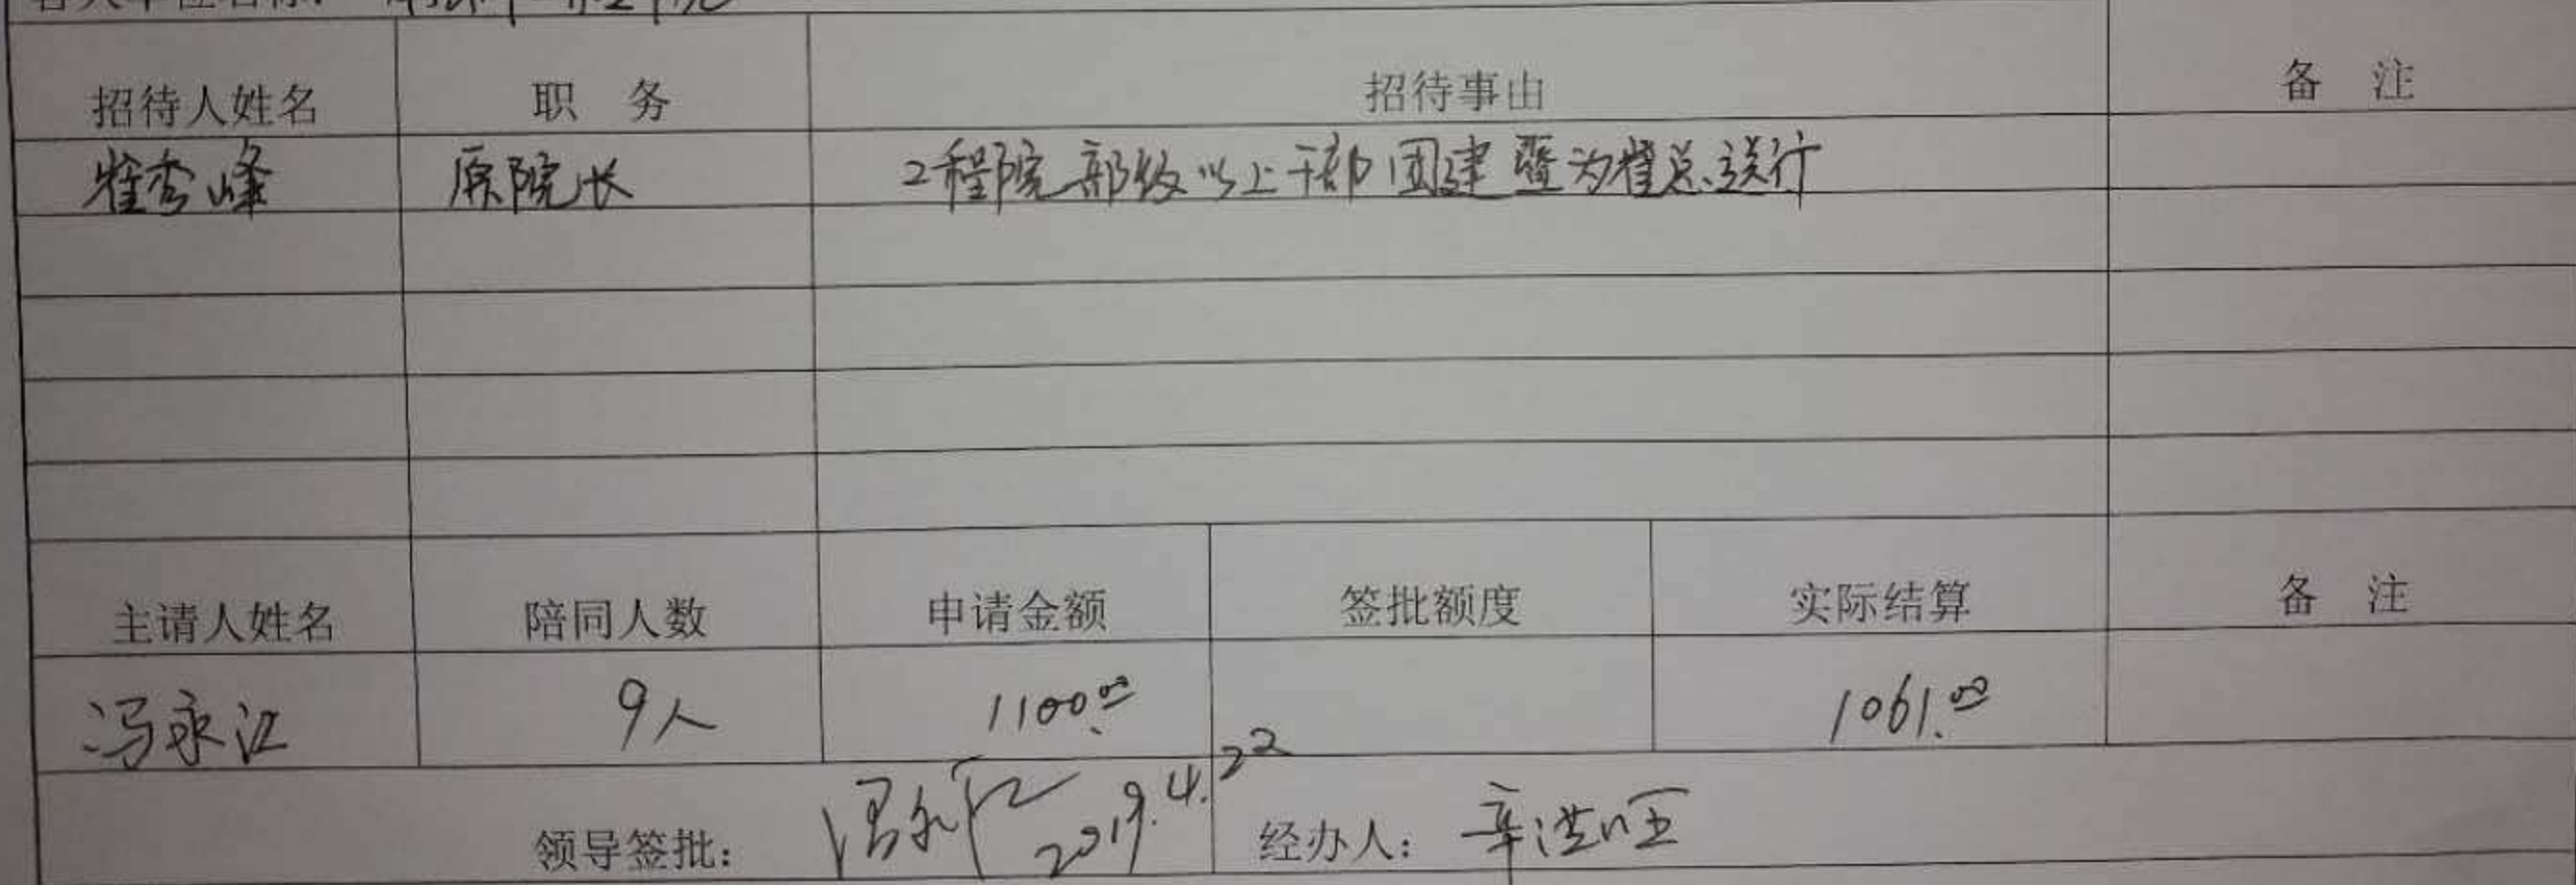 招待人姓名 职 务 招待事由 备 注
崔秀峰 原院长 工程院部级以上干部团建暨为崔总送行
主请人姓名 陪同人数 申请金额 签批额度 实际结算 备 注
冯永江 9人 1100.00 1061.00
领导签批： 冯永江 2019.4.22 经办人： 辛洪